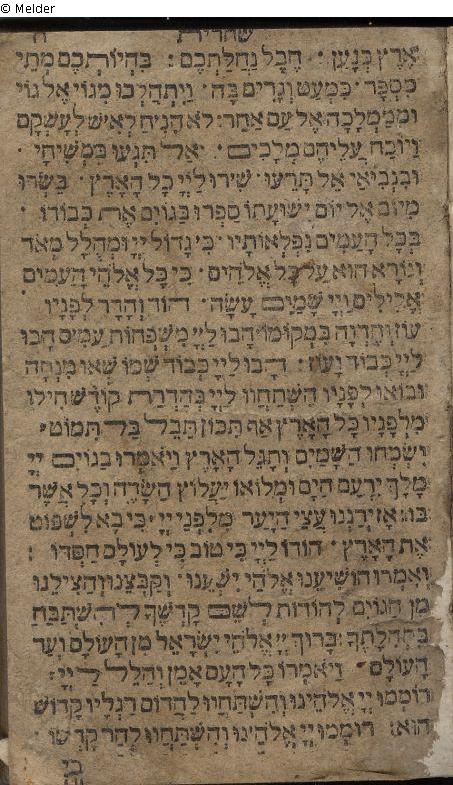 © Melder
שחרית ח
אֶרֶץ כְּנָעַן · חֶבֶל נַחֲלַתְכֶם : בִּהְיוֹתְכֶם מְתֵי
מִסְפָּר · כִּמְעַט וְגָרִים בָּהּ · וַיִּתְהַלְּכוּ מִגּוֹי אֶל גּוֹי
וּמִמַּמְלָכָה אֶל עַם אַחֵר : לֹא הִנִּיחַ לְאִישׁ לְעָשְׁקָם
וַיּוֹכַח עֲלֵיהֶם מְלָכִים · אַל תִּגְּעוּ בִּמְשִׁיחָי
וּבִנְבִיאַי אַל תָּרֵעוּ · שִׁירוּ לַיְיָ כָּל הָאָרֶץ · בַּשְּׂרוּ
מִיּוֹם אֶל יוֹם יְשׁוּעָתוֹ סַפְּרוּ בַגּוֹיִם אֶת כְּבוֹדוֹ
בְּכָל הָעַמִּים נִפְלְאוֹתָיו · כִּי גָדוֹל יְיָ וּמְהֻלָּל מְאֹד
וְנוֹרָא הוּא עַל כָּל אֱלֹהִים · כִּי כָּל אֱלֹהֵי הָעַמִּים
אֱלִילִים וַיְיָ שָׁמַיִם עָשָׂה · הוֹד וְהָדָר לְפָנָיו
עוֹז וְחֶדְוָה בִּמְקוֹמוֹ · הָבוּ לַיְיָ מִשְׁפְּחוֹת עַמִּים הָבוּ
לַיְיָ כָּבוֹד וָעוֹז : הָבוּ לַיְיָ כְּבוֹד שְׁמוֹ שְׂאוּ מִנְחָה
וּבוֹאוּ לְפָנָיו הִשְׁתַּחֲווּ לַיְיָ בְּהַדְרַת קוֹדֶשׁ חִילוּ
מִלְּפָנָיו כָּל הָאָרֶץ אַף תִּכּוֹן תֵּבֵל בַּל תִּמּוֹט ·
יִשְׂמְחוּ הַשָּׁמַיִם וְתָגֵל הָאָרֶץ וְיֹאמְרוּ בַגּוֹיִם יְיָ
מָלָךְ יִרְעַם הַיָּם וּמְלוֹאוֹ יַעֲלוֹץ הַשָּׂדֶה וְכָל אֲשֶׁר
בּוֹ : אָז יְרַנְּנוּ עֲצֵי הַיָּעַר מִלִּפְנֵי יְיָ · כִּי בָא לִשְׁפּוֹט
אֶת הָאָרֶץ · הוֹדוּ לַיְיָ כִּי טוֹב כִּי לְעוֹלָם חַסְדּוֹ :
וְאִמְרוּ הוֹשִׁיעֵנוּ אֱלֹהֵי יִשְׁעֵנוּ · וְקַבְּצֵנוּ וְהַצִּילֵנוּ
מִן הַגּוֹיִם לְהוֹדוֹת לְשֵׁם קָדְשֶׁךָ לְהִשְׁתַּבֵּחַ
בִּתְהִלָּתֶךָ : בָּרוּךְ יְיָ אֱלֹהֵי יִשְׂרָאֵל מִן הָעוֹלָם וְעַד
הָעוֹלָם · וַיֹּאמְרוּ כָּל הָעָם אָמֵן וְהַלֵּל לַיְיָ :
רוֹמְמוּ יְיָ אֱלֹהֵינוּ וְהִשְׁתַּחֲווּ לַהֲדוֹם רַגְלָיו קָדוֹשׁ
הוּא : רוֹמְמוּ יְיָ אֱלֹהֵינוּ וְהִשְׁתַּחֲווּ לְהַר קָדְשׁוֹ
כי